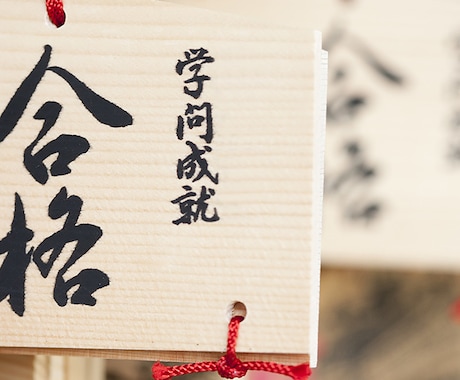 学問成就
合格